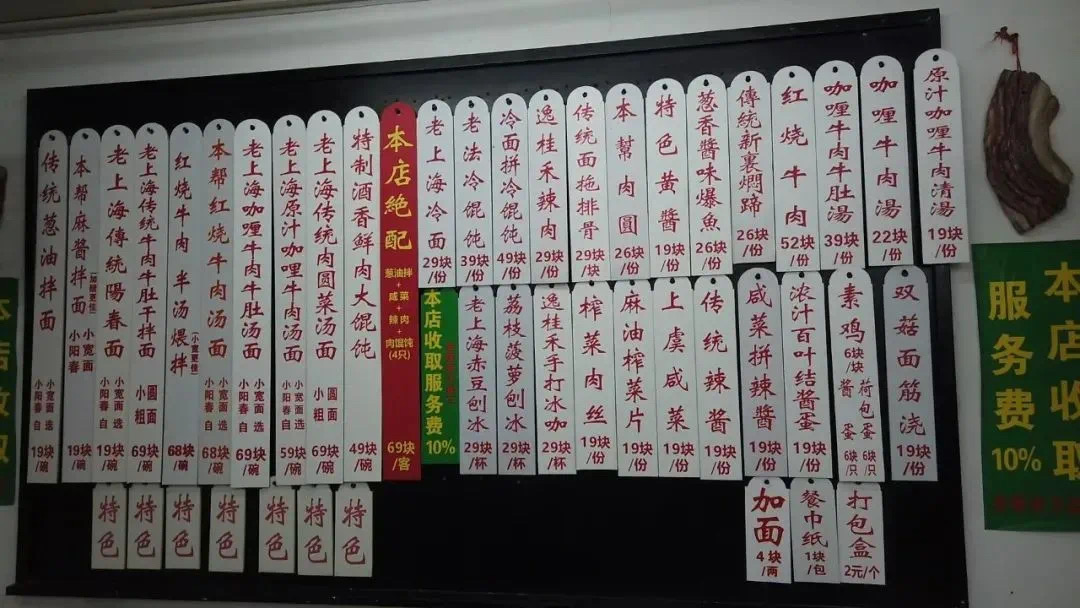 传统葱油拌面 小宽面 小阳春自选 19块/碗
本帮麻酱拌面 小宽面 小阳春 19块/碗
老上海傳統陽春面 小宽面 小阳春自选 19块/碗
老上海传统牛肉牛肚干拌面 小粗圆面 69块/碗
红烧牛肉半汤煨拌(小宽更佳) 68块/碗
本帮红烧牛肉汤面 小宽面 小阳春自选 68块/碗
老上海咖喱牛肉牛肚汤面 小宽面 小阳春自选 69块/碗
老上海原汁咖喱牛肉汤面 小宽面 小阳春自选 59块/碗
老上海传统肉圆菜汤面 小粗圆面 69块/碗
特制酒香鲜肉大馄饨 49块/碗
本店絶配 葱油拌+咸菜+辣肉+肉馄饨(4只) 69块/客
老上海冷面 29块/份
老法冷馄饨 39块/份
冷面拼冷馄饨 49块/份
逸桂禾辣肉 29块/份
传统面拖排骨 29块/块
本幫肉圓 26块/份
特色黄醬 19块/份
葱香醬味爆魚 26块/份
傳統新裏燜蹄 26块/份
红烧牛肉 52块/份
咖喱牛肉牛肚湯 39块/份
咖喱牛肉湯 22块/份
原汁咖喱牛肉清湯 19块/份
本店收取服务费10%
老上海赤豆刨冰 29块/杯
荔枝菠萝刨冰 29块/杯
逸桂禾手打冰咖 29块/杯
榨菜肉丝 19块/份
麻油榨菜片 19块/份
上虞咸菜 19块/份
传统辣酱 19块/份
咸菜拼辣醬 19块/份
浓汁百叶结醬蛋 19块/份
素鸡 6块/块
醬蛋 6块/只
荷包蛋 6块/只
双菇面筋浇 19块/份
特色
特色
特色
特色
特色
特色
特色
加面 4块/两
餐巾纸 1块/包
打包盒 2元/个
本店收取
服务费
10%
本店收取